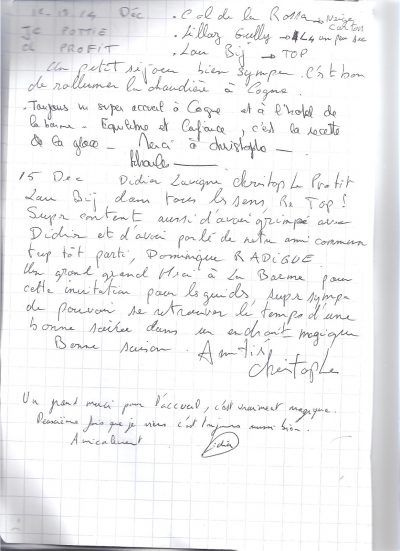 12.13.14 Déc
. Col de la Rossa → Neige Carton
JC POTTIE
. Lillaz Gully → un peu sec
CH PROFIT
. Lau Bij → TOP
Un petit séjour bien sympa. C'est bon
de rallumer la chaudière à Cogne.
. Toujours un super accueil à Cogne et à l'hotel de
la barme - Equilibre et Confiance, c'est la recette
de la glace - Merci à christophe -
15 Dec Didier Lavigne christophe Profit
Lau Bij dans tous les sens, Re TOP !
Super content aussi d'avoir grimpé avec
Didier et d'avoir parlé de notre ami commun
trop tôt parti, Dominique RADIGUE
Un grand grand Merci à La Barme pour
cette invitation pour les guides, super sympa
de pouvoir se retrouver le temps d'une
bonne soirée dans un endroit magique
Bonne saison. Amitiés
Christophe
Un grand merci pour l'accueil, c'est vraiment magique.
Deuxième fois que je viens c'est toujours aussi bien.
Amicalement Didier